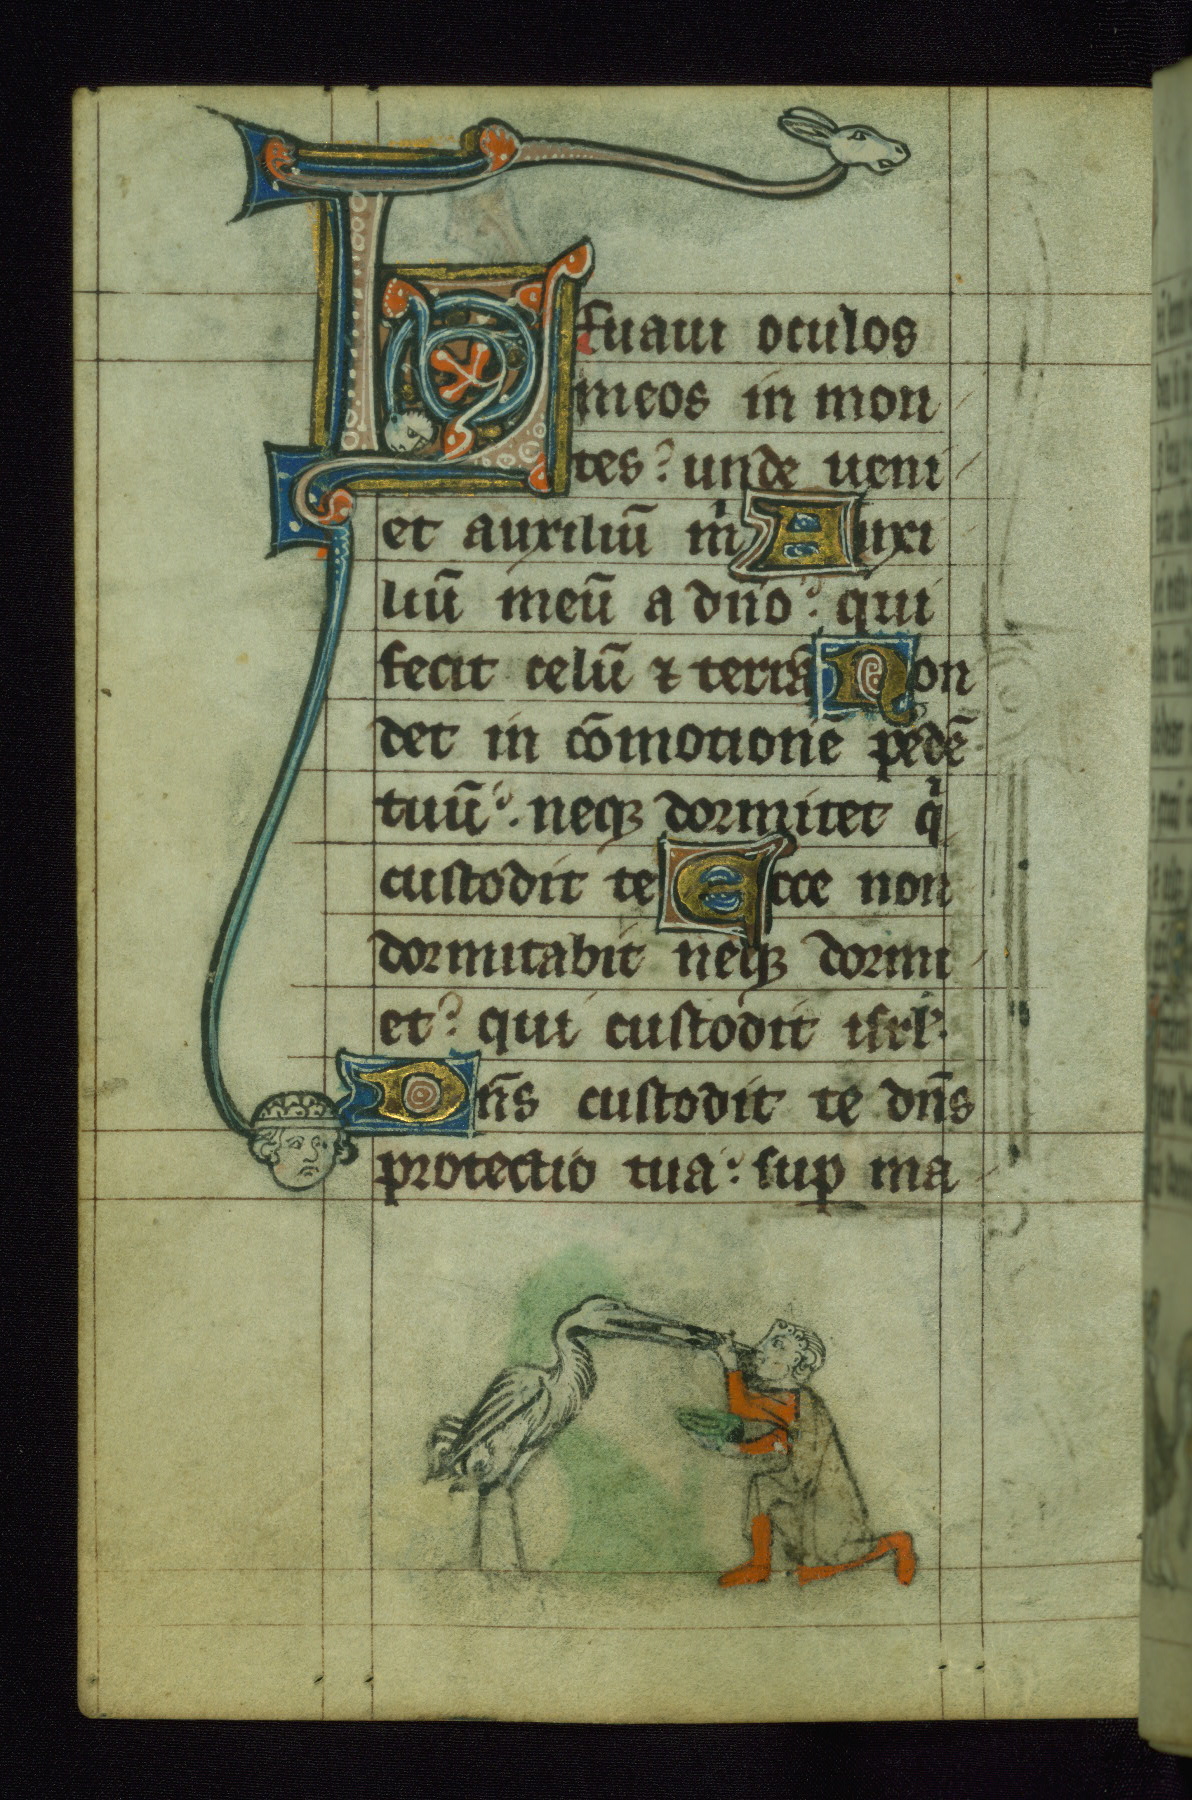 Leuaui oculos
meos in mon
tes? unde ueni
et auxiliū m̄ Auxi
liū meū a dn̄o? qui
fecit celū ⁊ terrā Non
det in cōmotionē pedē
tuū? neqꝫ dormitet q̇
custodit te Ecce non
dormitabit neqꝫ dormi
et? qui custodit isrl̄.
Dn̄s custodit te dn̄s
protectio tua? suꝑ ma